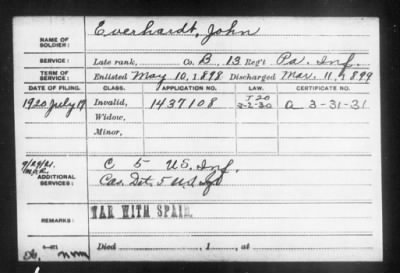 NAME OF SOLDIER: Everhardt, John
SERVICE: Late rank, Co. B, 13 Reg't Pa. Inf.
TERM OF SERVICE: Enlisted May 10, 1898 Discharged Mar. 11, 1899
DATE OF FILING. CLASS. APPLICATION NO. LAW. CERTIFICATE NO.
1920 July 19 Invalid, 1437108 J 20 A 3-31-31
Widow,
Minor,
ADDITIONAL SERVICES: C 5 U.S. Inf.
Cas. Det. 5 U.S.
REMARKS: WAR WITH SPAIN.
Died , 1 , at